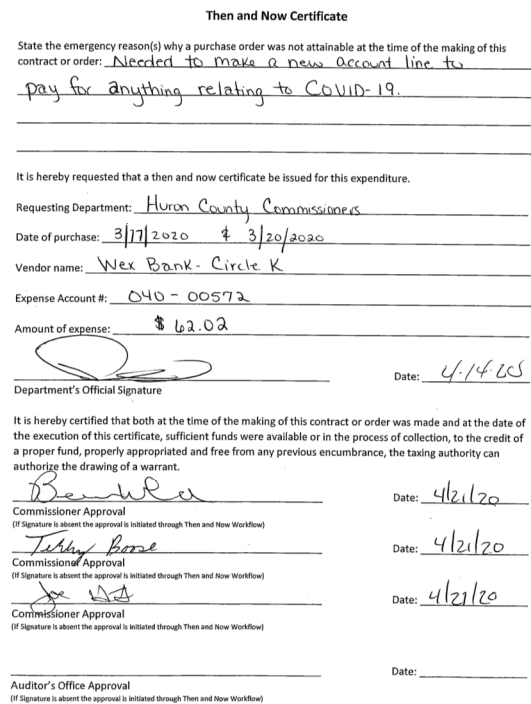 Then and Now Certificate
State the emergency reason(s) why a purchase order was not attainable at the time of the making of this
contract or order: Needed to make a new account line to
pay for anything relating to COVID-19.
It is hereby requested that a then and now certificate be issued for this expenditure.
Requesting Department: Huron County Commissioners
Date of purchase: 3/17/2020 & 3/20/2020
Vendor name: Wex Bank - Circle K
Expense Account #: 040 - 00572
Amount of expense: $ 62.02
Date: 4.14.20
Department's Official Signature
It is hereby certified that both at the time of the making of this contract or order was made and at the date of
the execution of this certificate, sufficient funds were available or in the process of collection, to the credit of
a proper fund, properly appropriated and free from any previous encumbrance, the taxing authority can
authorize the drawing of a warrant.
Date: 4/21/20
Commissioner Approval
(If Signature is absent the approval is initiated through Then and Now Workflow)
Terry Boose Date: 4/21/20
Commissioner Approval
(If Signature is absent the approval is initiated through Then and Now Workflow)
Joe Date: 4/21/20
Commissioner Approval
(If Signature is absent the approval is initiated through Then and Now Workflow)
Date:
Auditor's Office Approval
(If Signature is absent the approval is initiated through Then and Now Workflow)